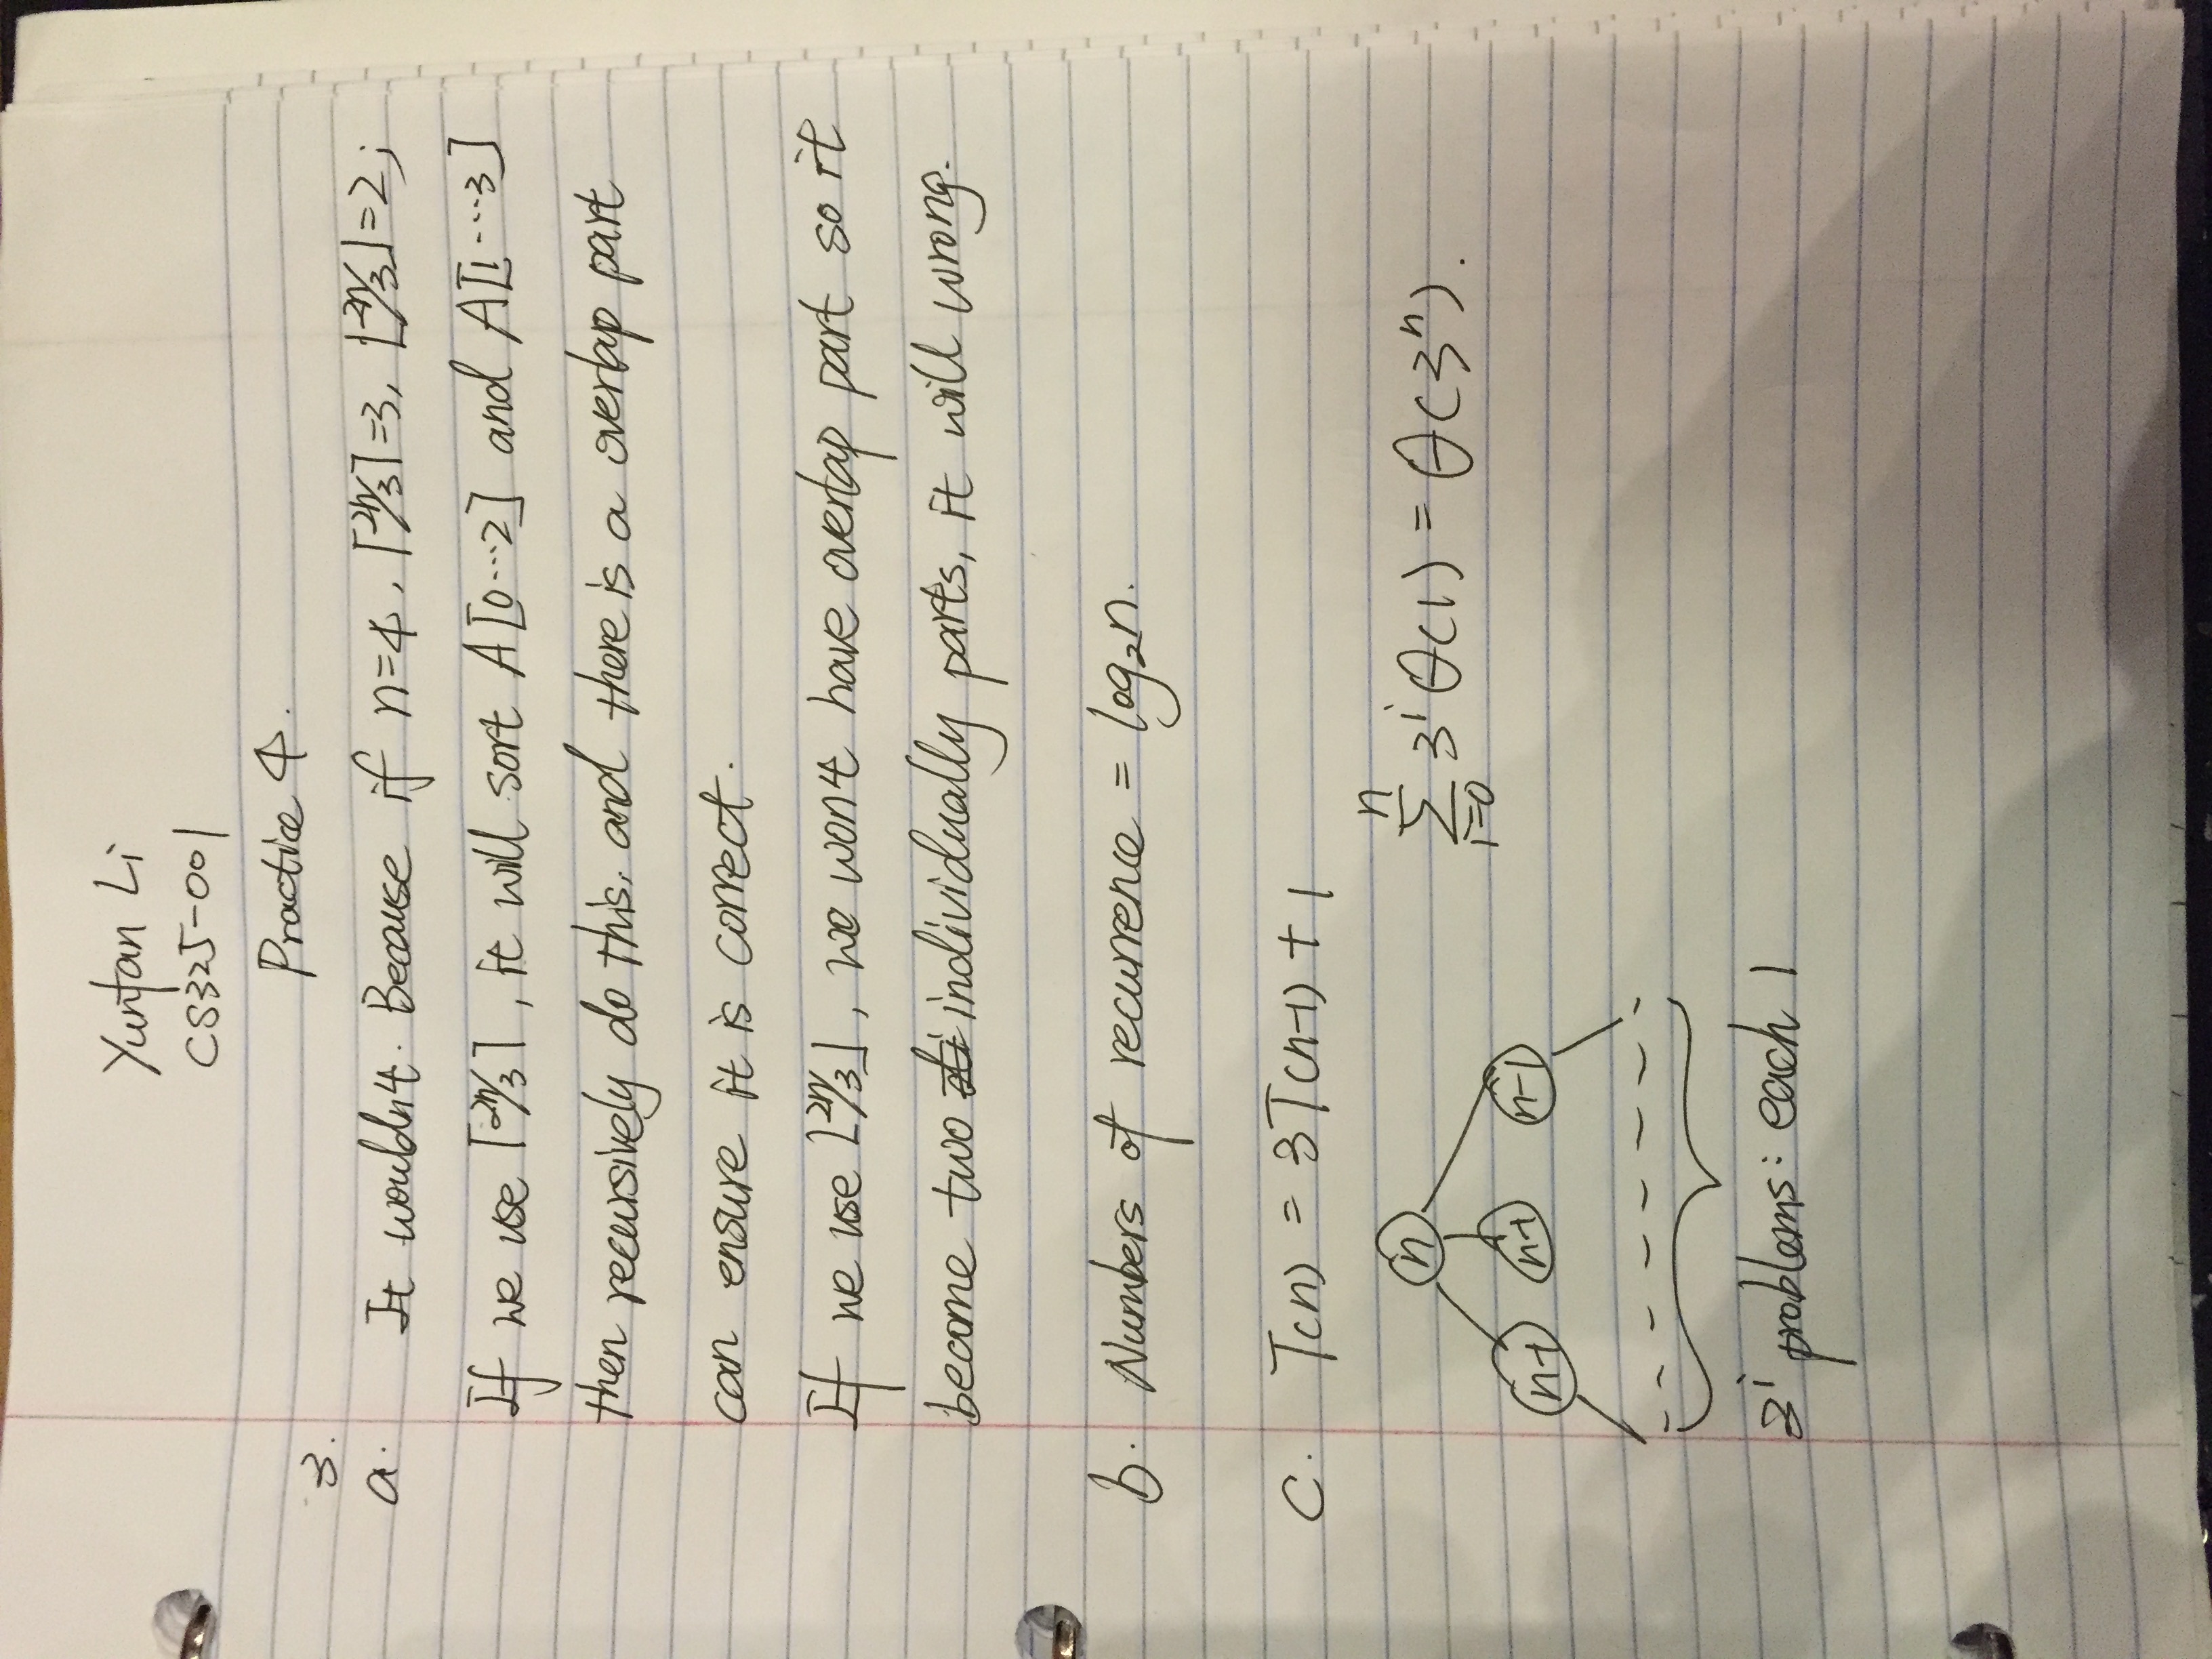 Yunfan Li
CS325-001
Practice 4.
3.
a. It wouldn't. Because if n=4, ⌈2n/3⌉=3, ⌊2n/3⌋=2;
If we use ⌈2n/3⌉, it will sort A[0···2] and A[1···3]
then recursively do this, and there is a overlap part
can ensure it is correct.
If we use ⌊2n/3⌋, we won't have overlap part so it
become two individually parts, it will wrong.
b. Numbers of recurrence = log₂n.
c. T(n) = 3T(n-1) + 1
n
n-1 n-1 n-1
∑ⁿᵢ₌₀ 3ⁱ θ(1) = θ(3ⁿ).
3ⁱ problems: each 1